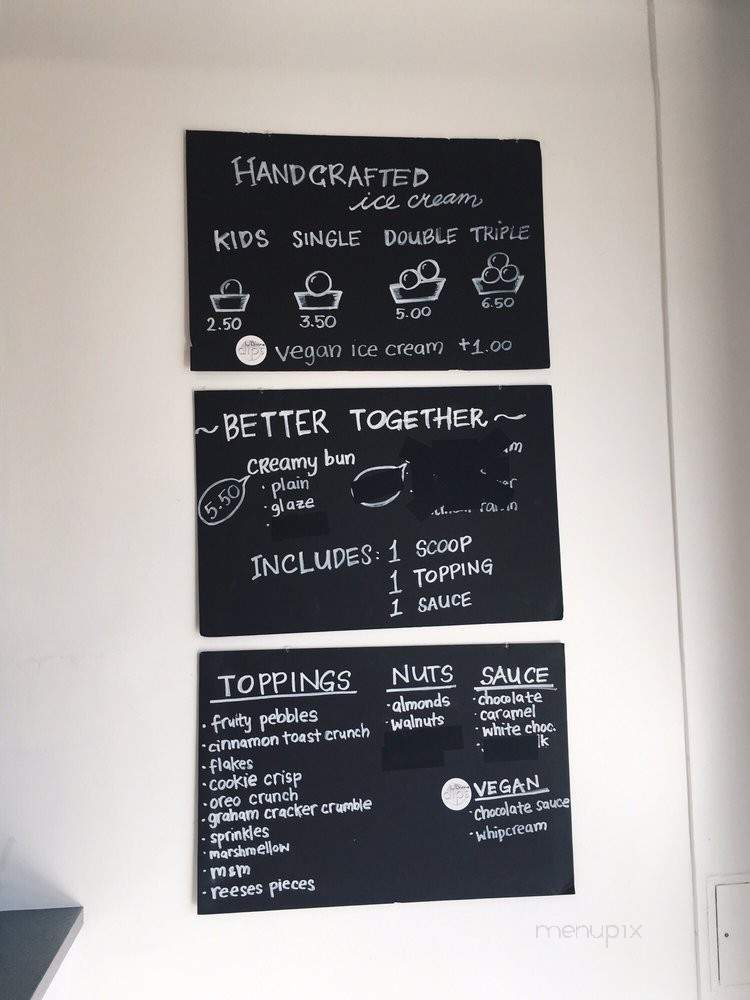 HANDCRAFTED
ice cream
KIDS SINGLE DOUBLE TRIPLE
2.50 3.50 5.00 6.50
dips vegan ice cream +1.00
~BETTER TOGETHER~
creamy bun
5.50
· plain
· glaze
INCLUDES: 1 SCOOP
1 TOPPING
1 SAUCE
TOPPINGS
· fruity pebbles
· cinnamon toast crunch
· flakes
· cookie crisp
· oreo crunch
· graham cracker crumble
· sprinkles
· marshmellow
· m&m
· reeses pieces
NUTS
· almonds
· walnuts
SAUCE
· chocolate
· caramel
· white choc.
dips VEGAN
· chocolate sauce
· whipcream
menupix